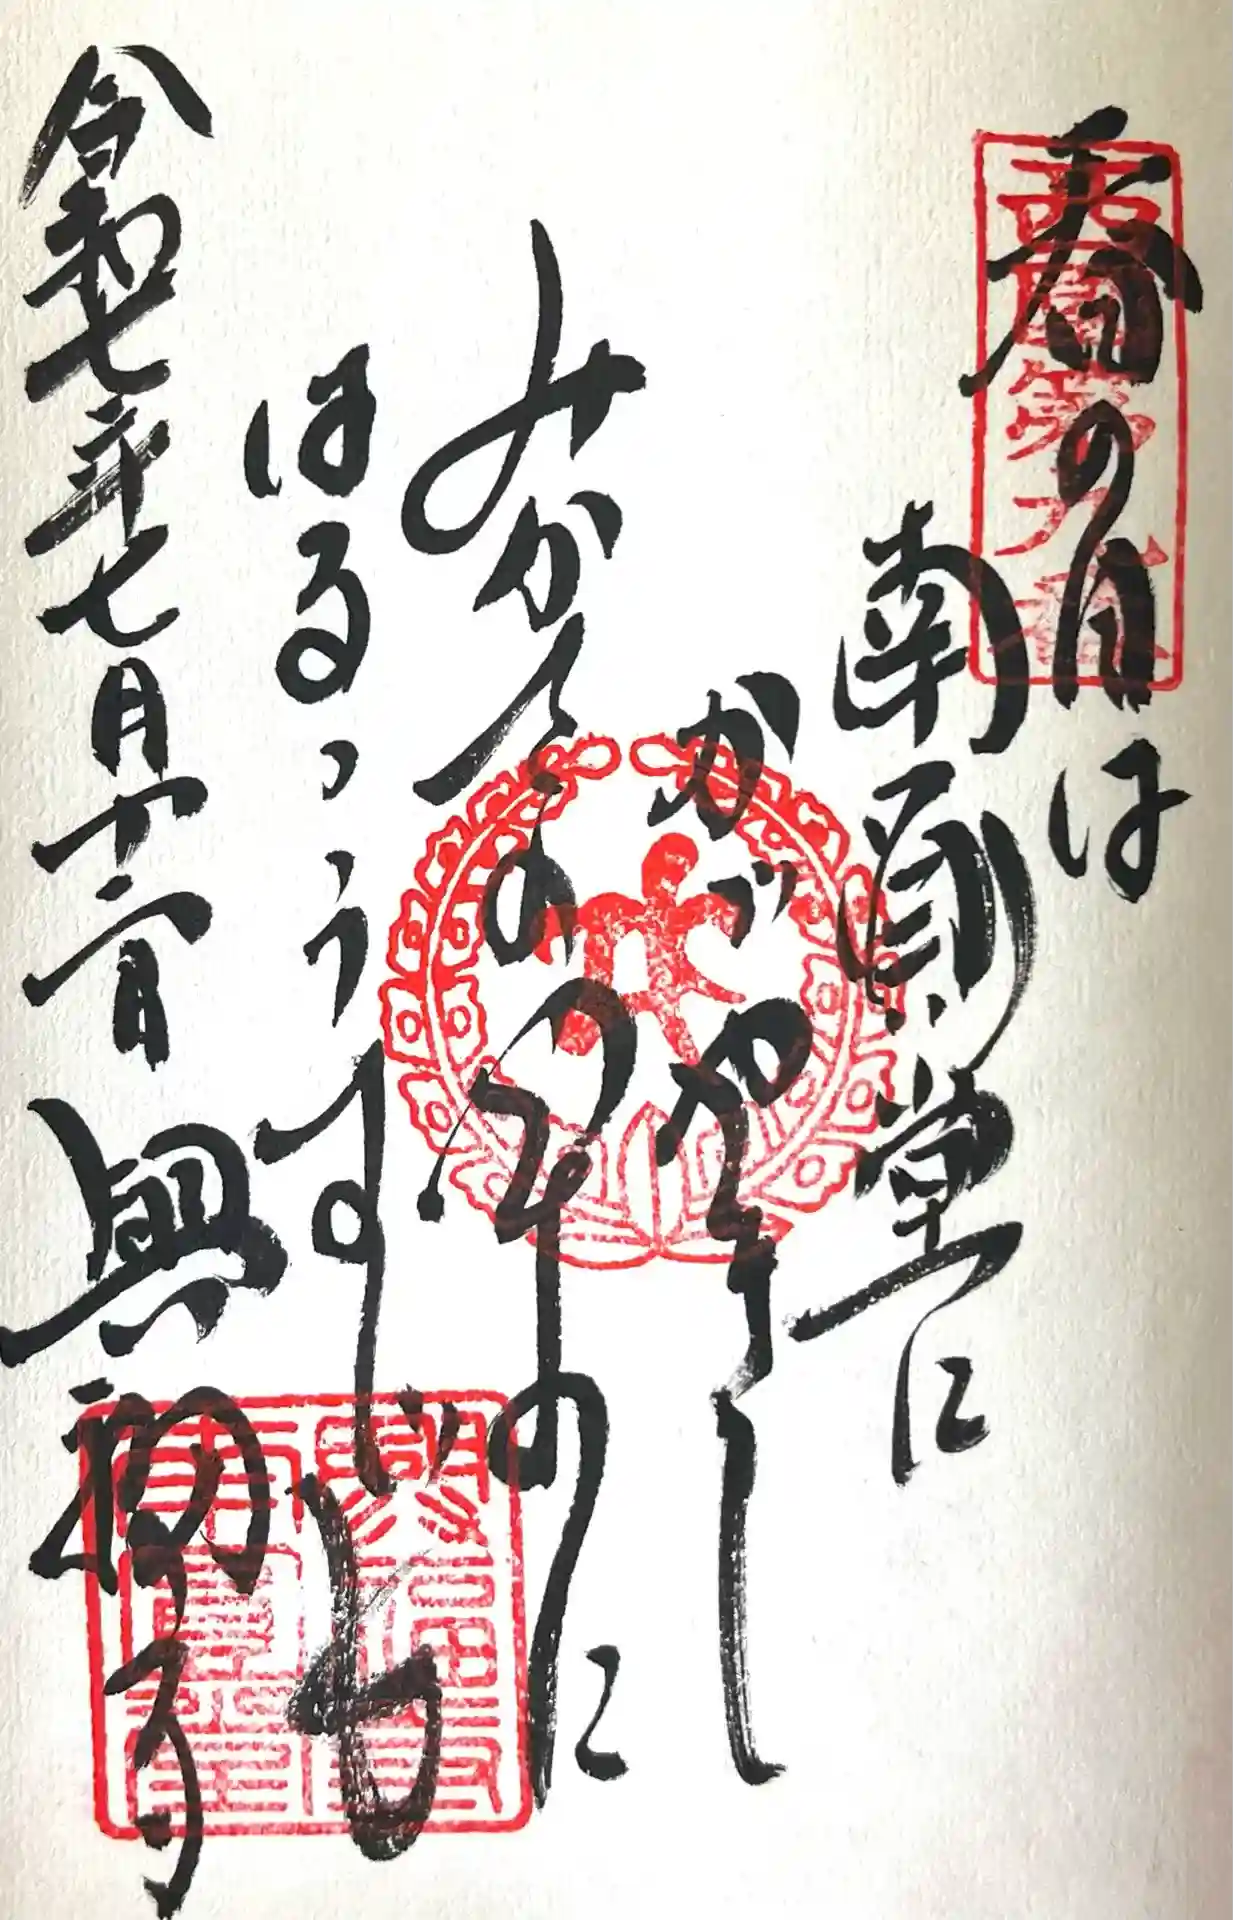 西國第九番
春の日は
南圓堂に
かゞやきて
みかさのやまに
はるゝうすぐも
令和七年七月十二日 興福寺